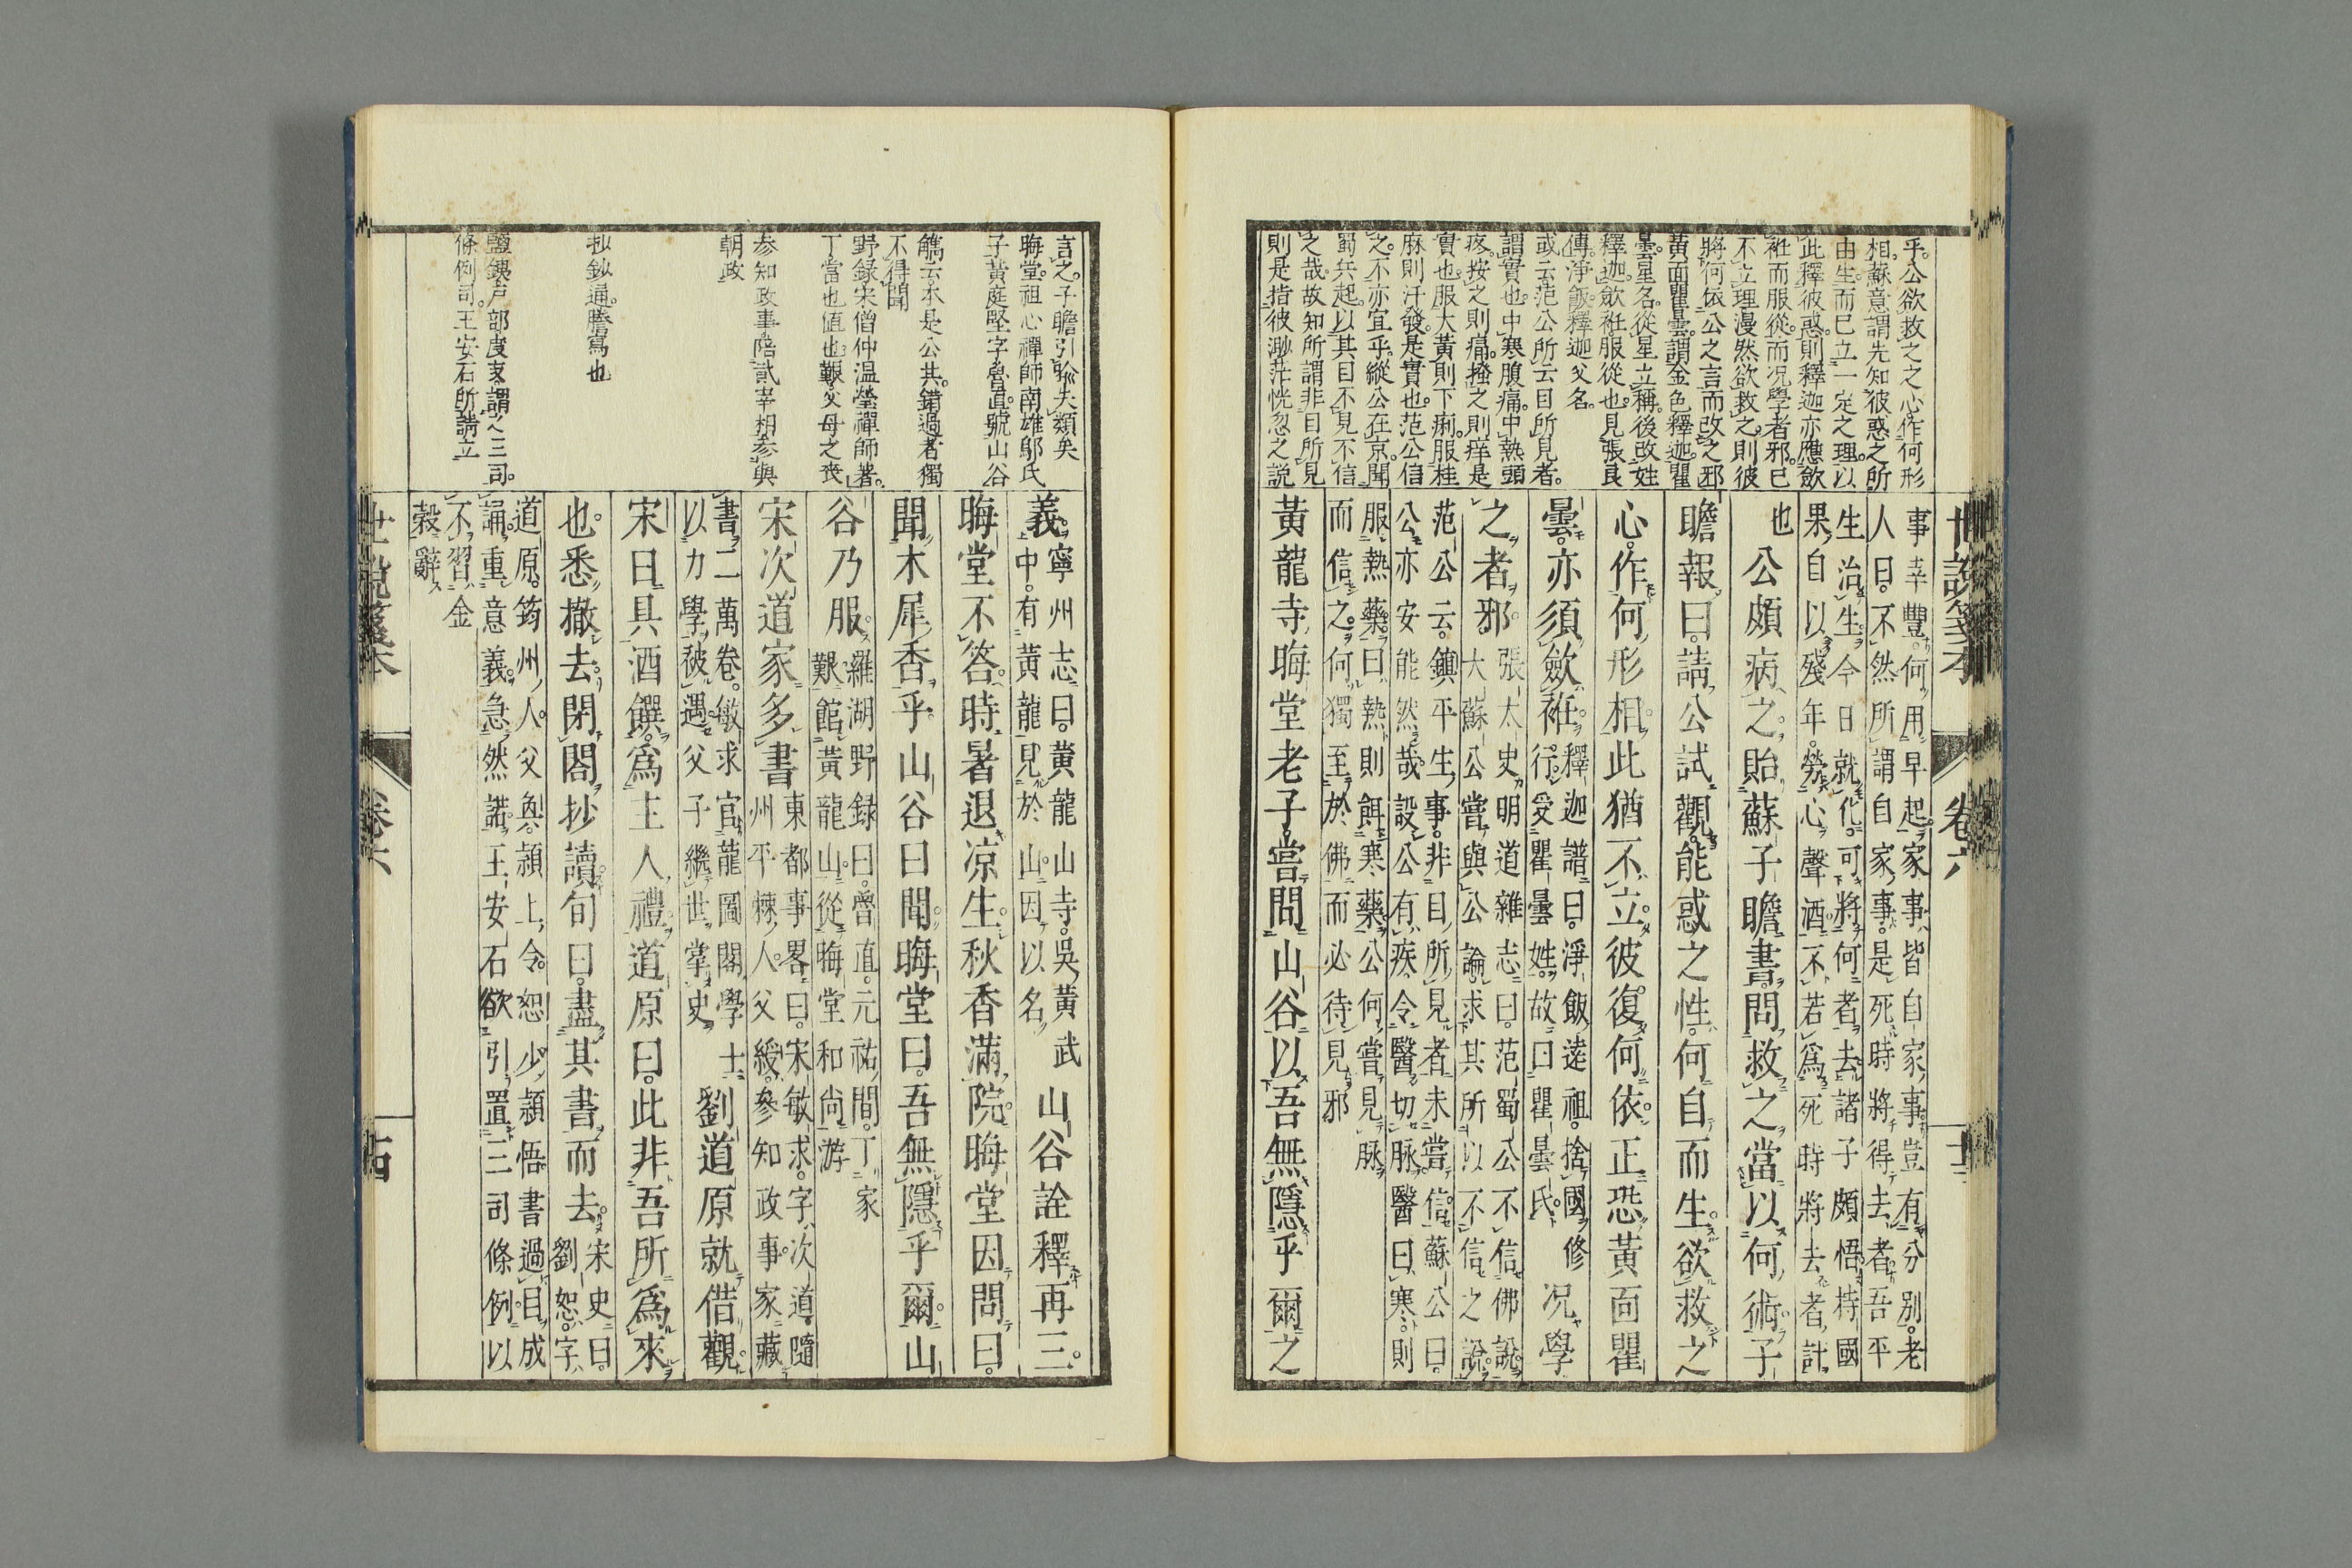 世說箋本
卷六
乎公欲救之之心作何形
相蘇意謂先知彼惑之所
由生而已立一定之理以
此釋彼惑則釋迦亦應斂
袵而服從而况學者邪已
不立理漫然欲救之則彼
將何依公之言而改之邪
黃面瞿曇謂金色釋迦瞿
曇星名從星立稱後改姓
釋迦斂袵服從也見張良
傳淨飯釋迦父名
或云范公所云目所見者
謂實也中寒腹痛中熱頭
疼按之則痛撥之則痒是
實也服大黃則下痢服桂
麻則汗發是實也范公信
之不亦宜乎縱公在京聞
蜀兵起以其目不見不信
之哉故知所謂非目所見
則是指彼渺茫恍忽之説
事幸豐何用早起家事皆自家事豈有分別老
人曰不然所謂自家事是死時將得去者吾平
生治生今日就化可將何者去諸子頗悟持國
果自以殘年勞心聲酒不若爲死時將去者計
也公頗病之貽蘇子瞻書問救之當以何術子
瞻報曰請公試觀能惑之性何自而生欲救之
心作何形相此猶不立彼復何依正恐黃面瞿
曇亦須斂袵釋迦譜曰淨飯遠祖捨國修
行受瞿曇姓故曰瞿曇氏况學
之者邪張太史明道雜志曰范蜀公不信佛說
大蘇公嘗與公論求其所以不信之說
范公云鎮平生事非目所見者未嘗信蘇公曰
公亦安能然哉設公有疾令醫切脉醫曰寒則
服熱藥曰熱則餌寒藥公何嘗見脉
而信之何獨至於佛而必待見邪
黃龍寺晦堂老子嘗問山谷以吾無隱乎爾之
言之子瞻引喩失類矣
晦堂祖心禪師南雄鄔氏
子黃庭堅字魯直號山谷
觿云本是公共錯過者獨
不得聞
野録宋僧仲温瑩禪師著
丁當也値也艱父母之喪
参知政事陪貳宰相参與
朝政
抄鈔通謄寫也
鹽鐵戶部度支謂之三司
條例司王安石所請立
義寧州志曰黃龍山寺吳黃武
中有黃龍見於山因以名山谷詮釋再三
晦堂不答時暑退涼生秋香滿院晦堂因問曰
聞木犀香乎山谷曰聞晦堂曰吾無隱乎爾山
谷乃服羅湖野録曰魯直元祐間丁家
艱館黃龍山從晦堂和尚游
宋次道家多書東都事畧曰宋敏求字次道隨
州平棘人父綬參知政事家藏
書二萬卷敏求官龍圖閣學士
以力學被遇父子繼世掌史劉道原就借觀
宋日具酒饌爲主人禮道原曰此非吾所爲來
也悉撤去閉閤抄讀旬日盡其書而去宋史曰
劉恕字
道原筠州人父奐潁上令恕少頴悟書過目成
誦重意義急然諾王安石欲引置三司條例以
不習金
穀辭
世說箋本
卷六
十四